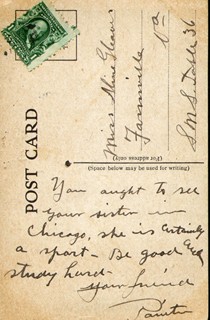 POST CARD
Miss Aline
Farmville
Va
S M S
36
(For address only)
(Space below may be used for writing)
You ought to see
your sister in
Chicago, she is certainly
a sport - Be good and
study hard -
Your friend